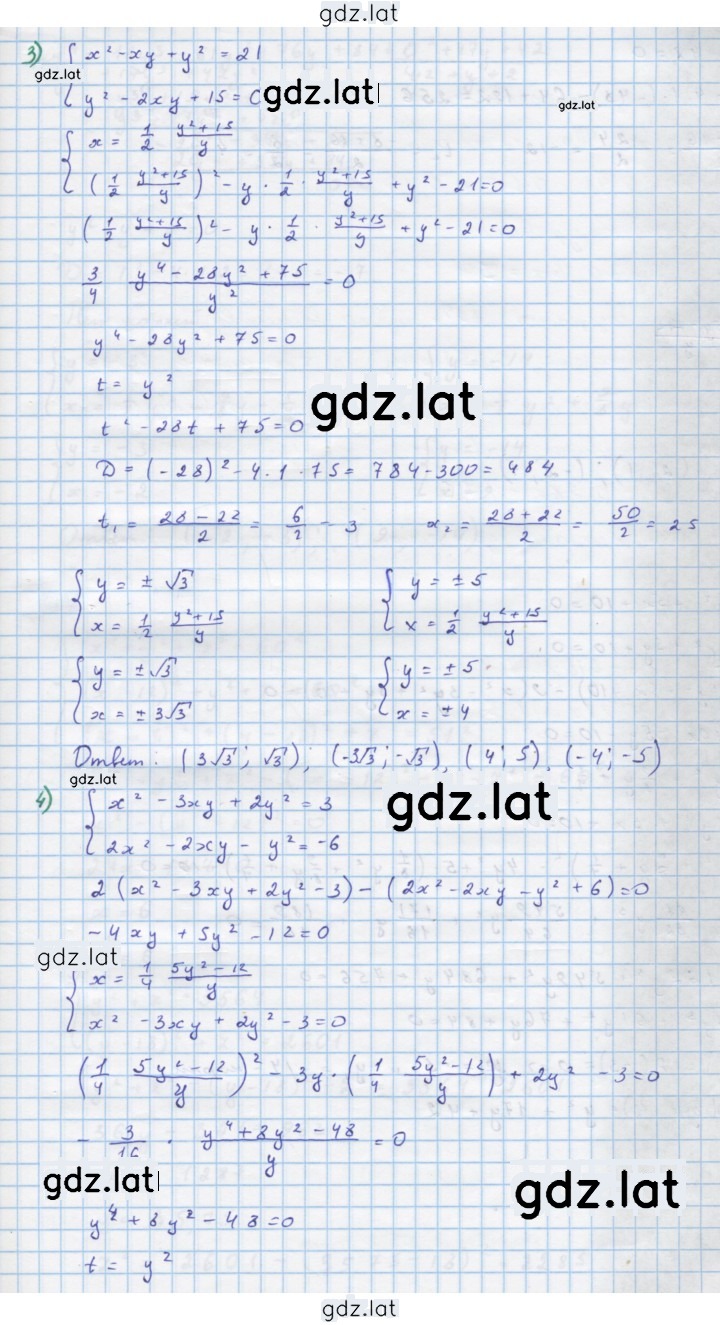 gdz.lat
3) { x² - xy + y² = 21
gdz.lat
{ y² - 2xy + 15 = 0 gdz.lat
{ x = 1/2 (y²+15)/y
{ (1/2 (y²+15)/y)² - y · 1/2 · (y²+15)/y + y² - 21 = 0
gdz.lat
(1/2 (y²+15)/y)² - y · 1/2 · (y²+15)/y + y² - 21 = 0
3/4 (y⁴ - 28y² + 75)/y² = 0
y⁴ - 28y² + 75 = 0
t = y²
gdz.lat
t² - 28t + 75 = 0
D = (-28)² - 4 · 1 · 75 = 784 - 300 = 484
t₁ = (28 - 22)/2 = 6/2 - 3 x₂ = (28 + 22)/2 = 50/2 = 25
{ y = ± √3 { y = ± 5
{ x = 1/2 (y²+15)/y { x = 1/2 (y²+15)/y
{ y = ± √3 { y = ± 5
{ x = ± 3√3 { x = ± 4
Ответ: (3√3; √3); (-3√3; -√3), (4; 5), (-4; -5)
4) { x² - 3xy + 2y² = 3
gdz.lat
{ 2x² - 2xy - y² = -6
2(x² - 3xy + 2y² - 3) - (2x² - 2xy - y² + 6) = 0
-4xy + 5y² - 12 = 0
gdz.lat
{ x = 1/4 (5y² - 12)/y
{ x² - 3xy + 2y² - 3 = 0
(1/4 (5y² - 12)/y)² - 3y · (1/4 (5y² - 12)/y) + 2y² - 3 = 0
- 3/16 · (y⁴ + 8y² - 48)/y = 0
gdz.lat
gdz.lat
y⁴ + 8y² - 48 = 0
t = y²
gdz.lat